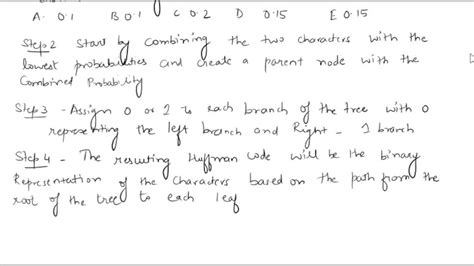 A. 0.1 B 0.1 C 0.2 D 0.15 E 0.15
Step 2 Start by combining the two characters with the
lowest probabilities and create a parent node with the
Combined Probability
Step 3 - Assign 0 or 1 to each branch of the tree with 0
representing the left branch and Right - 1 branch
Step 4 - The resulting Huffman Code will be the binary
Representation of the characters based on the path from the
root of the tree to each leaf